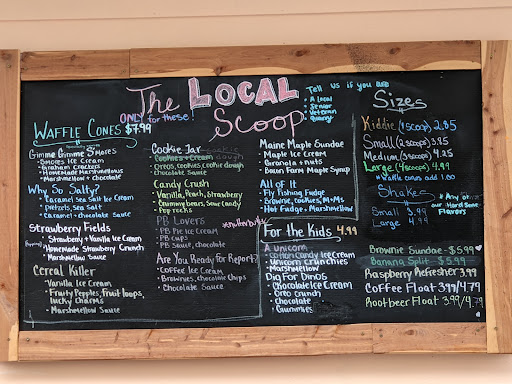 The LOCAL Scoop
Tell us if you are
• A local
• Senior
• Veteran
ONLY for these!
WAFFLE CONES $7.99
Gimme Gimme S'mores
• Smores Ice Cream
• Graham Crackers
• Homemade Marshmallows
• Marshmallow + Chocolate
Why So Salty?
• Caramel Sea Salt Ice Cream
• Pretzels, Sea Salt
• Caramel + chocolate Sauce
Strawberry Fields
• Strawberry + Vanilla Ice Cream
• Homemade Strawberry Crunch
• Marshmallow Sauce
Cereal Killer
• Vanilla Ice Cream
• Fruity Pebbles, Fruit loops,
lucky Charms
• Marshmallow Sauce
Cookie Jar
Cookies + Cream
Oreos, cookies, cookie dough
Chocolate Sauce
Candy Crush
• Vanilla, Peach, Strawberry
• Gummy bears, Sour Candy
• Pop rocks
PB Lovers
• PB Pie Ice Cream
• PB cups
• PB Sauce, chocolate
Are You Ready For Report?
• Coffee Ice Cream
• Brownies, Chocolate Chips
• Chocolate Sauce
Maine Maple Sundae
• Maple Ice Cream
• Granola + nuts
• Maple Syrup
All of It
• Fly Fishing Fudge
• Brownie, Cookies, M+Ms
• Hot Fudge + Marshmallow
For the Kids 4.99
A unicorn
• Cotton Candy Ice Cream
• Unicorn Crunchies
• Marshmallow
Dig For Dinos
• Chocolate Ice Cream
• Oreo Crunch
• Chocolate
• Gummies
Sizes
Kiddie (1 scoop) 2.85
Small (2 scoops) 3.25
Medium (3 scoops) 4.25
Large (4 scoops) 4.99
* Waffle Cone add 1.00
Shakes
Small 3.99
Large 4.99
* Any of
our Hard Serve
Flavors
Brownie Sundae - $5.99
Banana Split - $5.99
Raspberry Refresher 3.99
Coffee Float 3.99/4.79
Rootbeer Float 3.99/4.79